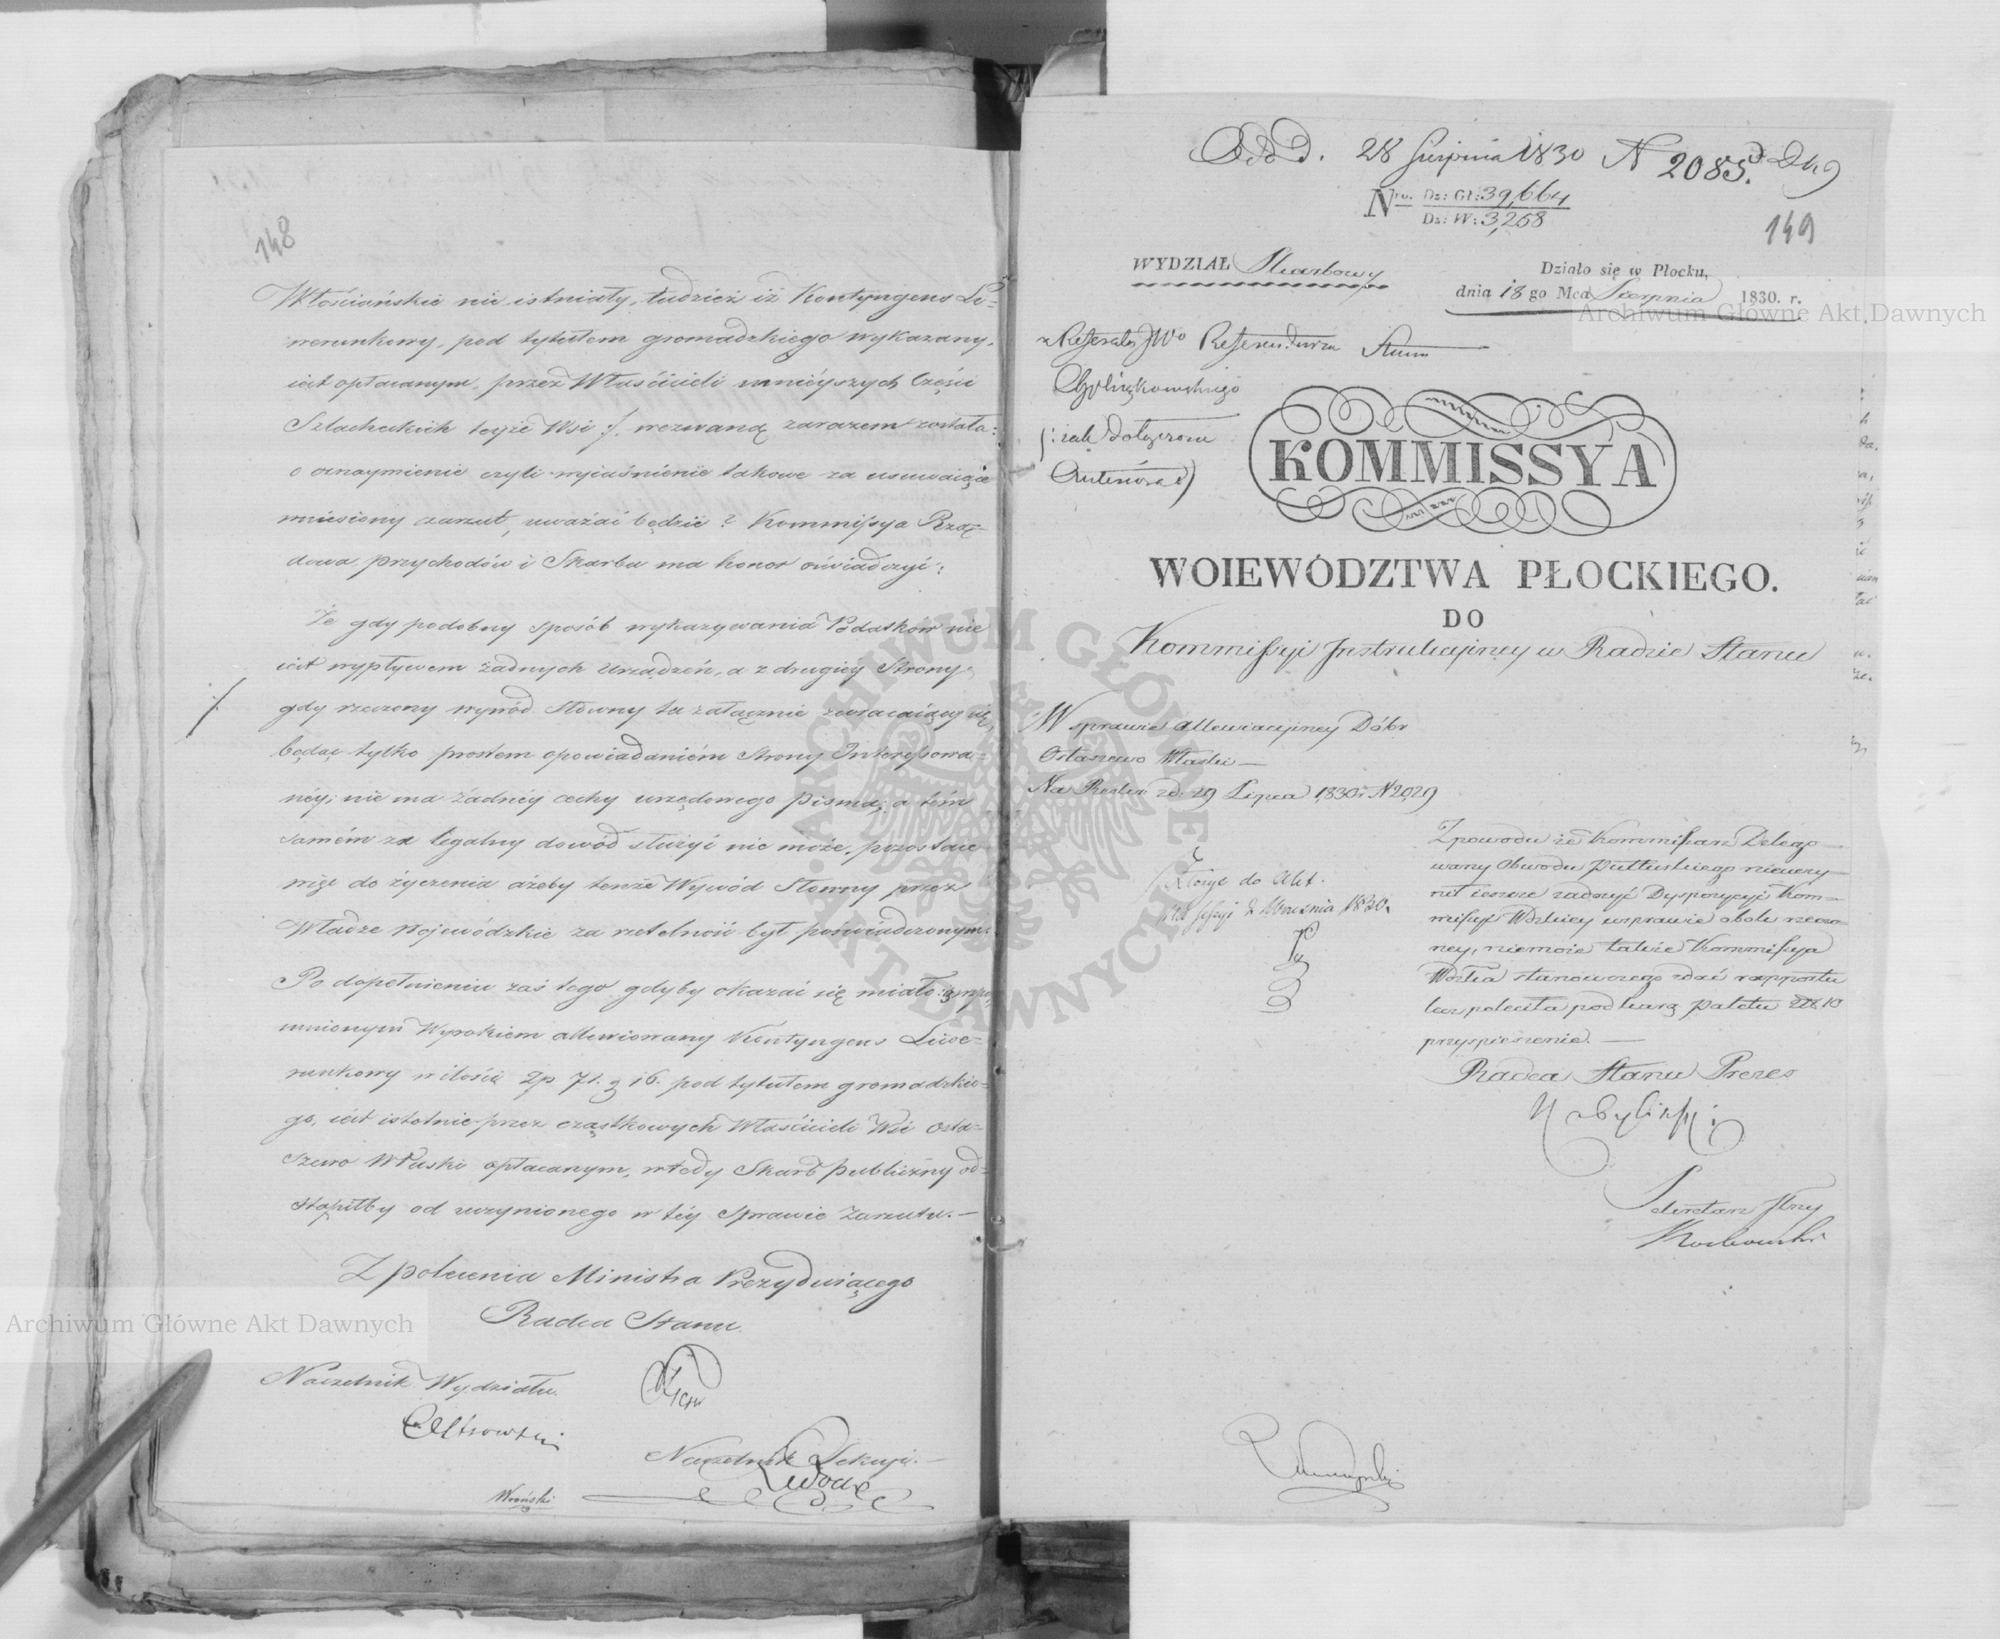 148
Włościańskie nie istniały, tudzież iż Kontyngens Li-
werunkowy, pod tytułem gromadzkiego wykazany,
iest opłacanym, przez Właścicieli mnieyszych Części
Szlacheckich teyże Wsi :/. wezwaną zarazem została:
o oznaymienie czyli wyiaśnienie takowe za usuwaiące
wniesiony zarzut, uważać będzie? Kommissya Rzą-
dowa Przychodów i Skarbu ma honor oświadczyć:
Że gdy podobny sposób wykazywania Podatków nie
iest wypływem żadnych Urządzeń, a z drugiey Strony
gdy rzeczony wywód Słowny tu załącznie zwracaiący się
będąc tylko prostem opowiadaniem Strony Interessowa-
ney; nie ma żadney cechy urzędowego pisma, a tem
samém za legalny dowód służyć nie może, pozostaie
więc do życzenia ażeby tenże Wywód Słowny przez
Władze Wojewódzkie za rzetelność był poświadczonym.
Po dopełnieniu zaś tego gdyby okazać się miało:
mnionym Wyrokiem allewiowany Kontyngens Liwe-
runkowy w ilości Zp. 71. g 16. pod tytułem gromadzkie-
go, iest istotnie przez cząstkowych Właścicieli Wsi Osta-
szewo Włuski opłacanym, wtedy Skarb publiczny od-
stąpiłby od uczynionego w téy Sprawie Zarzutu. —
Z polecenia Ministra Prezyduiącego
Radca Stanu
Naczelnik Wydziału
Ostrowski
Naczelnik Sekcyi. —
Wroński
Odd. 28 Sierpnia 1830 N 2085.
Nro. Dz: Gł: 39,664
Dz: W: 3,268
149
WYDZIAŁ Skarbowy
Działo się w Płocku,
dnia 18 go Mca Sierpnia 1830. r.
Referendarza Stanu
KOMMISSYA
WOIEWÓDZTWA PŁOCKIEGO.
DO
Kommissyi Instrukcyjney w Radzie Stanu
W sprawie allewiacyjney Dóbr
Ostaszewo Włuski —
Na Reskr: z d. 29 Lipca 1830 r N 2029
Z powodu że Kommissarz Delego-
wany Obwodu Pułtuskiego nieuczy-
nił ieszcze zadosyć Dyspozycyi Kom-
missyi Wdzkiey w sprawie obok rzeczo-
ney, niemoże także Kommissya
Wdzka stanowczego zdać rapportu
lecz poleciła pod karą Paletu Zł. 10
przyspieszenie. —
Złożyć do Akt.
Września 1830.
Radca Stanu Prezes
Sekretarz Jlny
Archiwum Główne Akt Dawnych
Archiwum Główne Akt Dawnych
ARCHIWUM GŁÓWNE AKT DAWNYCH